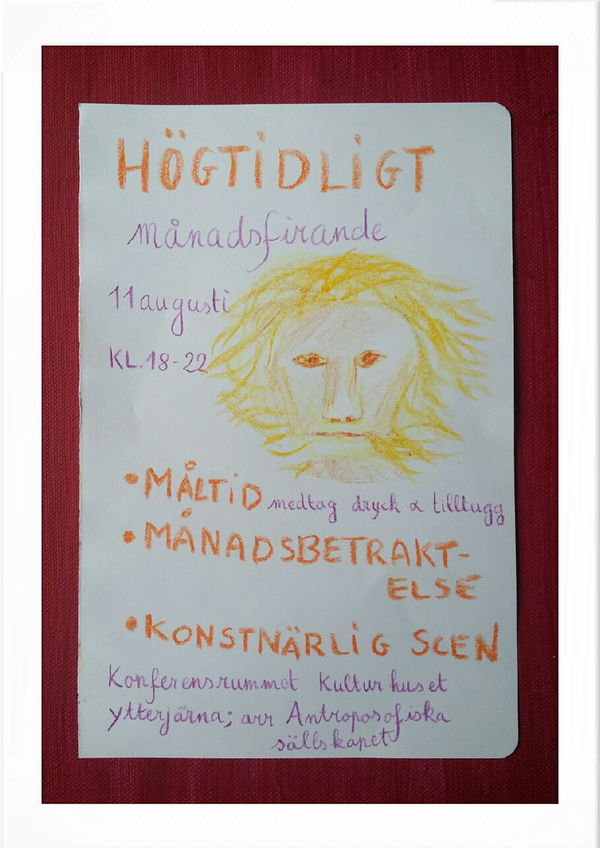 HÖGTIDLIGT
månadsfirande
11 augusti
KL.18-22
• MÅLTID medtag dryck & tilltugg
• MÅNADSBETRAKT-
ELSE
• KONSTNÄRLIG SCEN
Konferensrummet Kulturhuset
ytterjärna; arr Antroposofiska
sällskapet